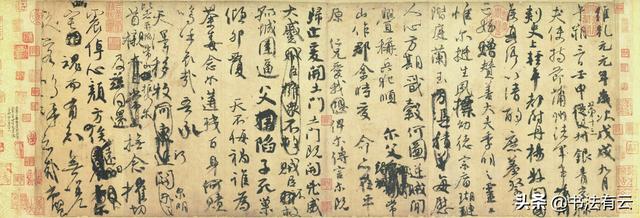 維乾元元年歲次戊戌九月庚
午朔三日壬申第十三叔銀青光祿
夫使持節蒲州諸軍事蒲州
刺史上輕車都尉丹楊縣開國
侯真卿以清酌庶羞祭于
亡姪贈贊善大夫季明之靈曰
惟爾挺生夙標幼德宗廟瑚璉
階庭蘭玉每慰
人心方期戩穀何圖逆賊閒
釁稱兵犯順爾父竭誠常
山作郡余時受命亦在平
原仁兄愛我俾爾傳言爾既
歸止爰開土門土門既開兇威
大蹙賊臣不救
孤城圍逼父陷子死巢
傾卵覆天不悔禍誰為
荼毒念爾遘殘百身何贖
嗚呼哀哉吾承
天澤移牧河關泉明
比者再陷常山攜爾
首櫬及茲同還撫念摧切
震悼心顏方俟遠日
爾幽宅魂而有知無嗟
久客嗚呼哀哉尚饗
头条 @书法有云